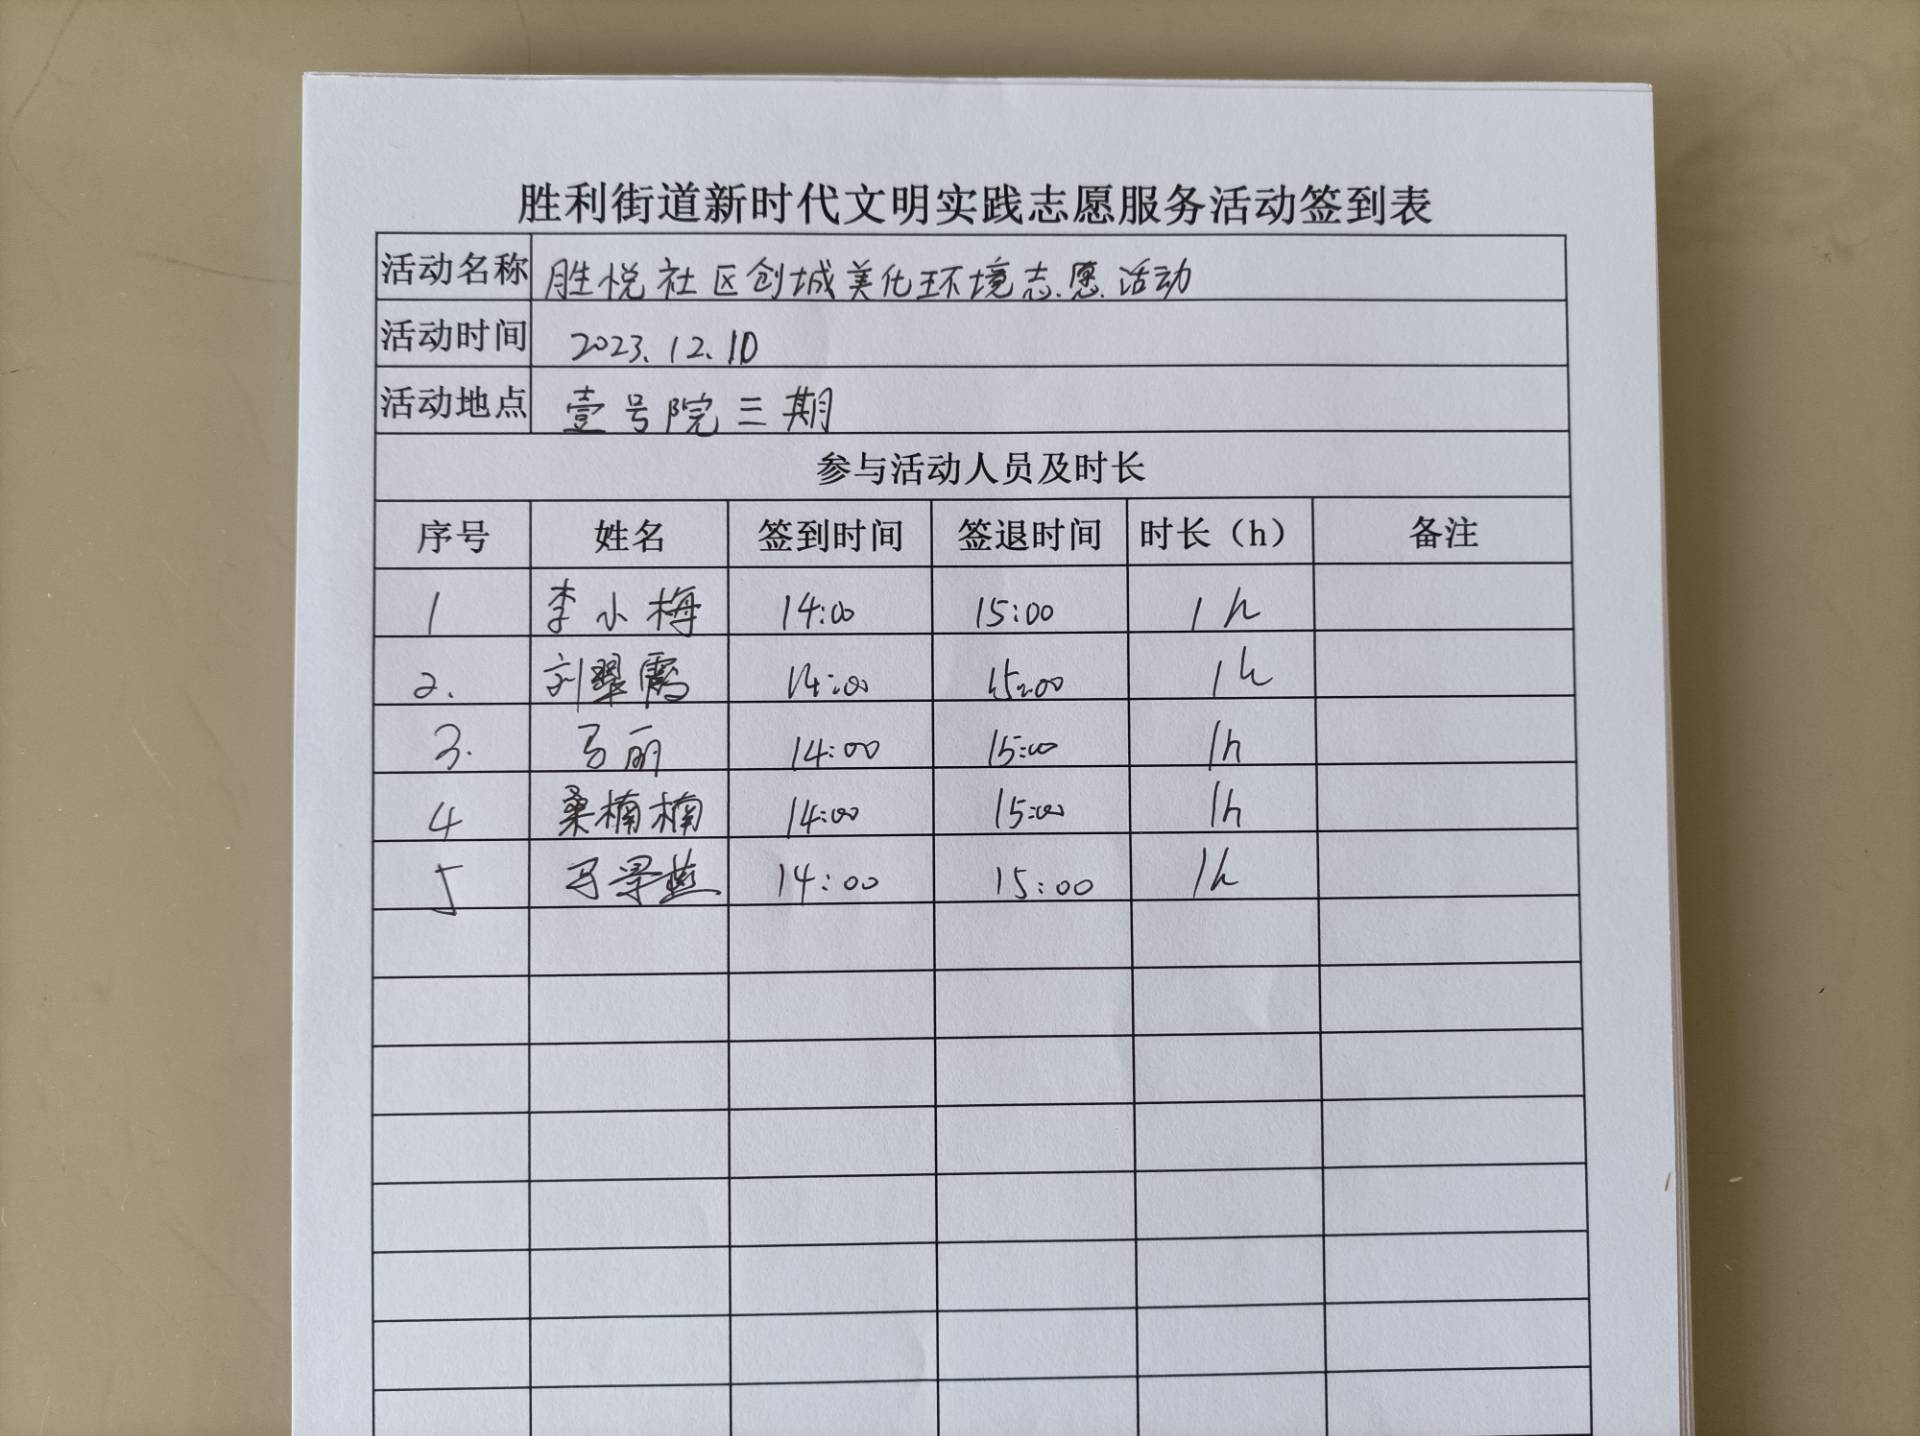 胜利街道新时代文明实践志愿服务活动签到表
活动名称 胜悦社区创城美化环境志愿活动
活动时间 2023.12.10
活动地点 壹号院三期
参与活动人员及时长
序号 姓名 签到时间 签退时间 时长（h） 备注
1 李小梅 14:00 15:00 1h
2. 刘翠霞 14:00 15:00 1h
3. 马丽 14:00 15:00 1h
4 桑楠楠 14:00 15:00 1h
5 14:00 15:00 1h